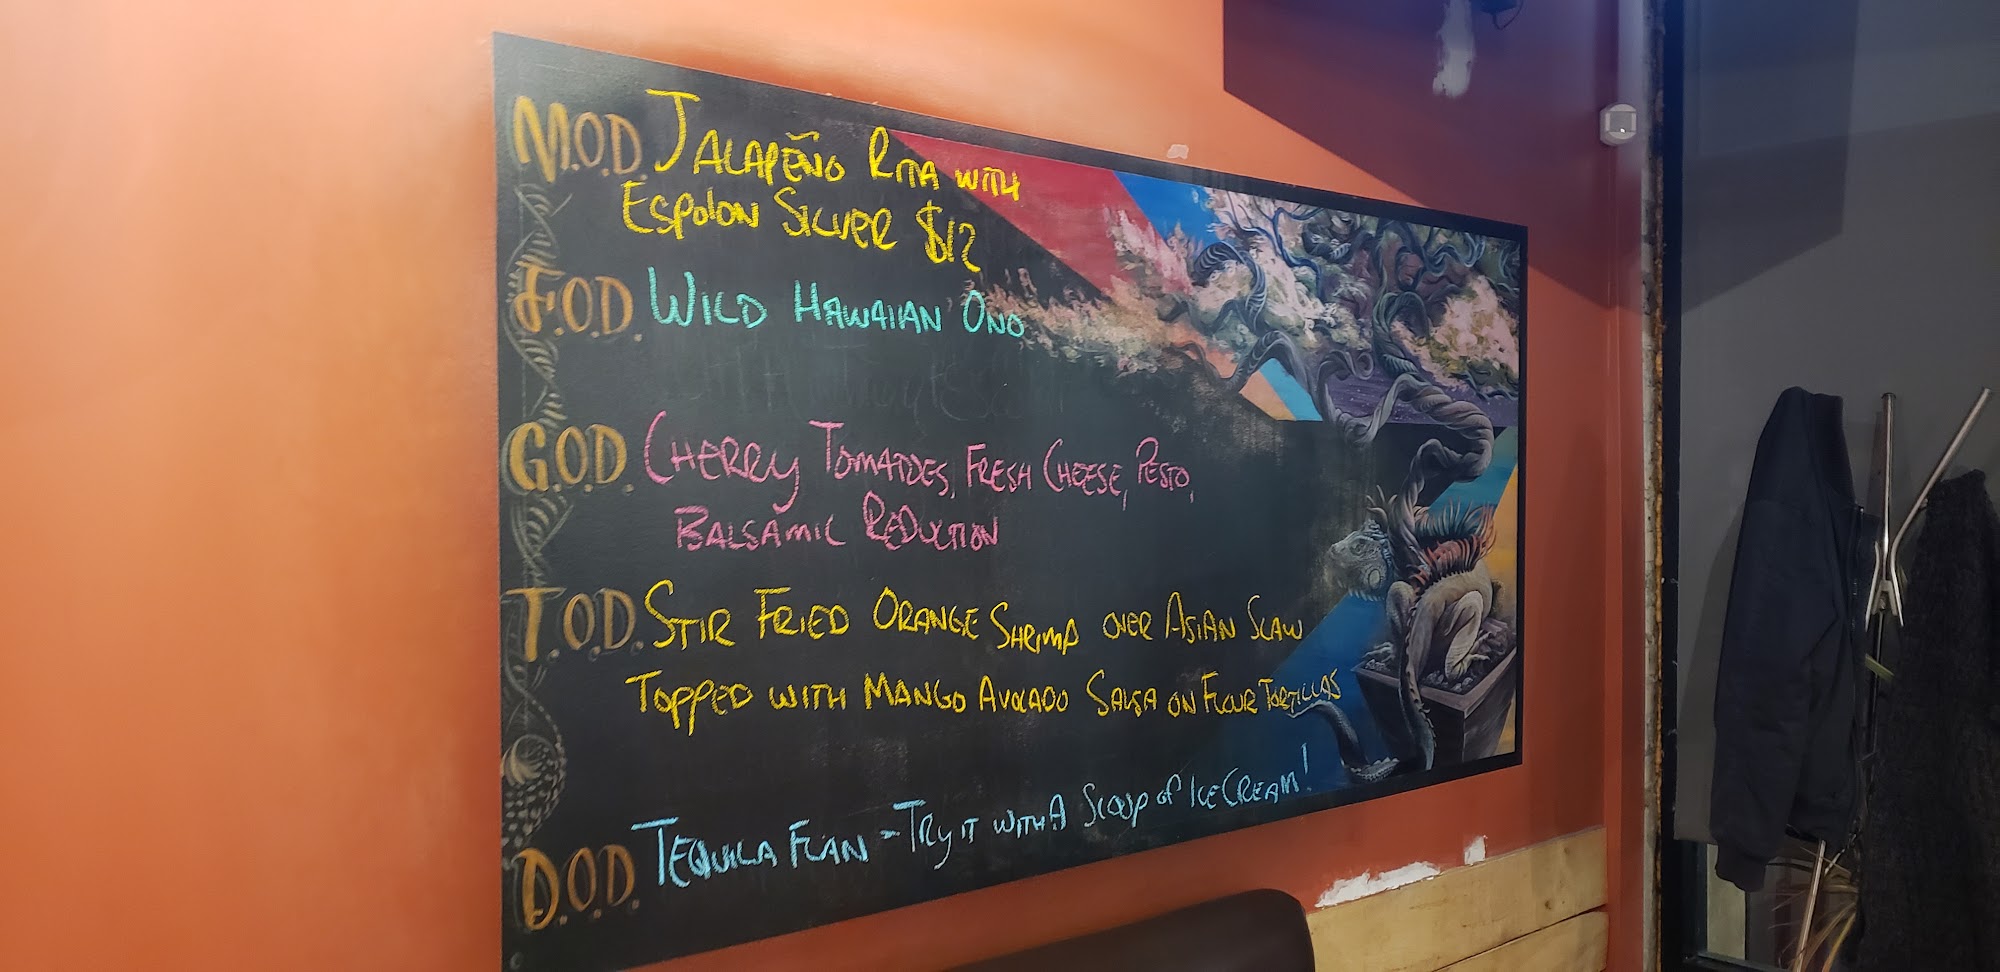 M.O.D. JALAPEÑO RITA WITH
ESPOLON SILVER $12
F.O.D. WILD HAWAIIAN ONO
G.O.D. CHERRY TOMATOES, FRESH CHEESE, PESTO,
BALSAMIC REDUCTION
T.O.D. STIR FRIED ORANGE SHRIMP OVER ASIAN SLAW
TOPPED WITH MANGO AVOCADO SALSA ON FLOUR TORTILLAS
D.O.D. TEQUILA FLAN - TRY IT WITH A SCOOP OF ICE CREAM!